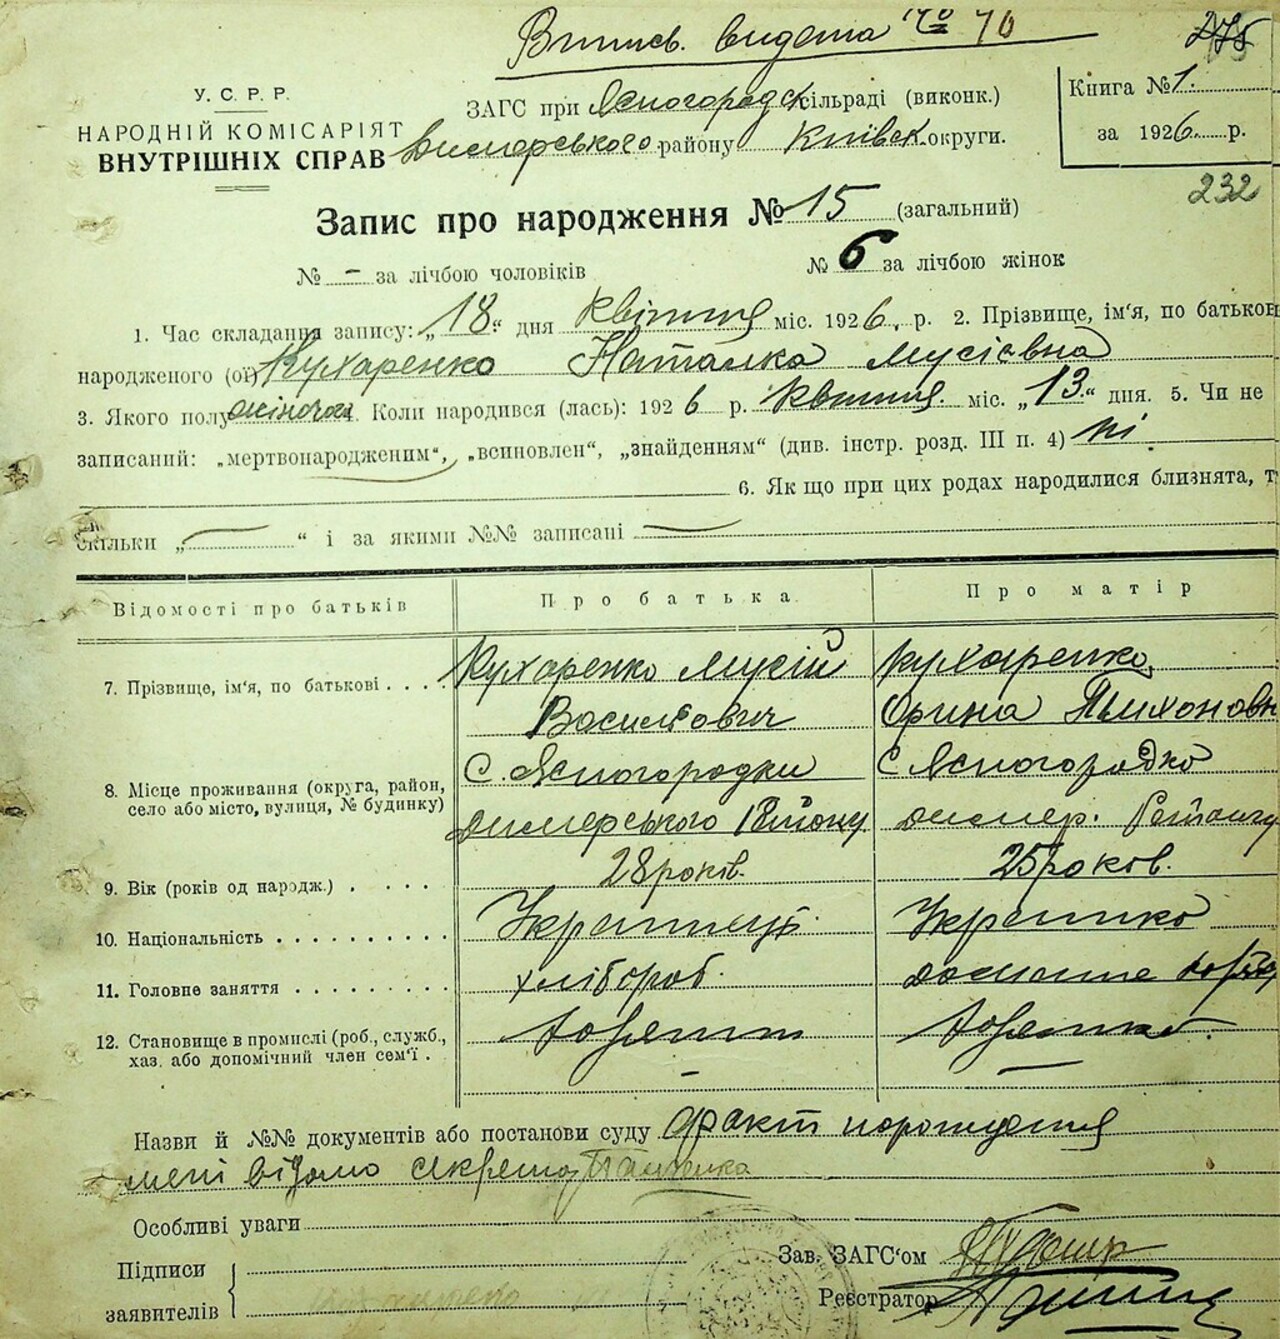 Випись видата № 70
275
У. С. Р. Р.
НАРОДНІЙ КОМІСАРІЯТ
ВНУТРІШНІХ СПРАВ
ЗАГС при Ясногородск сільраді (виконк.)
Димерського району Київск. округи.
Книга № 1.
за 1926 р.
232
Запис про народження № 15 (загальний)
№ - за лічбою чоловіків № 6 за лічбою жінок
1. Час складання запису: „18“ дня Квітня міс. 1926, р. 2. Прізвище, ім'я, по батькові
народженого (ої) Кухаренко Наталка Мусієвна
3. Якого полу жіночого. Коли народився (лась): 1926 р. Квітня міс. „13“ дня. 5. Чи не
записаний: „мертвонародженим“, „всиновлен“, „знайденням“ (див. інстр. розд. III п. 4) ні
6. Якщо при цих родах народилися близнята, т
скільки „ “ і за якими №№ записані
Відомості про батьків Про батька Про матір
7. Прізвище, ім'я, по батькові . . . . Кухаренко Мусій Кухаренко
Васильович Орина Тихоновн
8. Місце проживання (округа, район, село або місто, вулиця, № будинку) С. Ясногородки С Ясногородка
Димерського Району димер. Району
9. Вік (років од народж.) . . . . 28 років. 25 років.
10. Національність . . . . . . . . . . Українець Українка
11. Головне заняття . . . . . . . . . хлібороб. домашне
12. Становище в промислі (роб., служб., хаз. або допомічний член сем'ї .
Назви й №№ документів або постанови суду Факт нарождения
мені відомо
Особливі уваги
Підписи
заявителів
Зав. ЗАГС'ом
Реєстратор